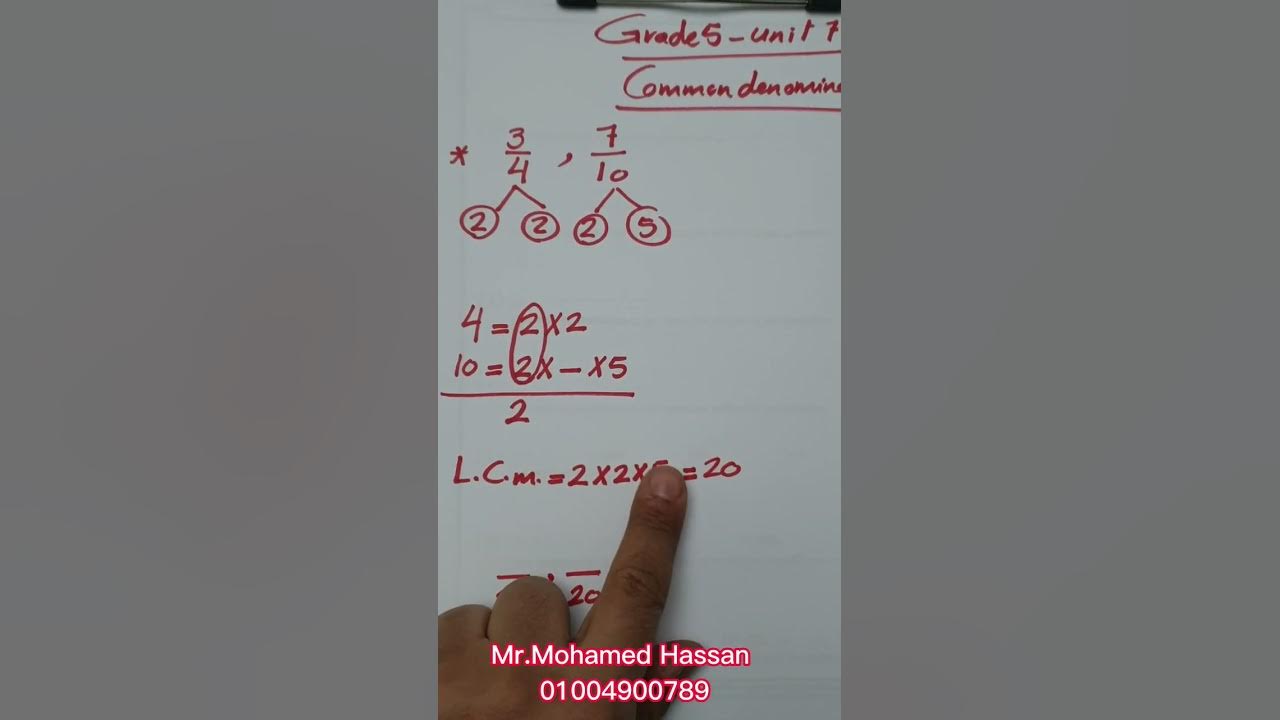 Grade5-unit 7
Common denomin
* 3/4 , 7/10
2 2 2 5
4=2×2
10=2×-×5
2
L.C.m.=2×2× =20
20
Mr.Mohamed Hassan
01004900789